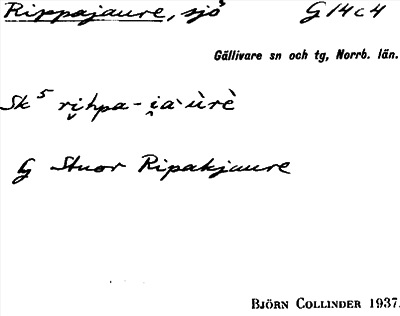 Rippajaure, sjö G 14 c 4
Gällivare sn och tg, Norrb. län.
Sk⁵ ri̯hpa-i̯a`ùrè
G Stuor Ripakjaure
BJÖRN COLLINDER 1937.